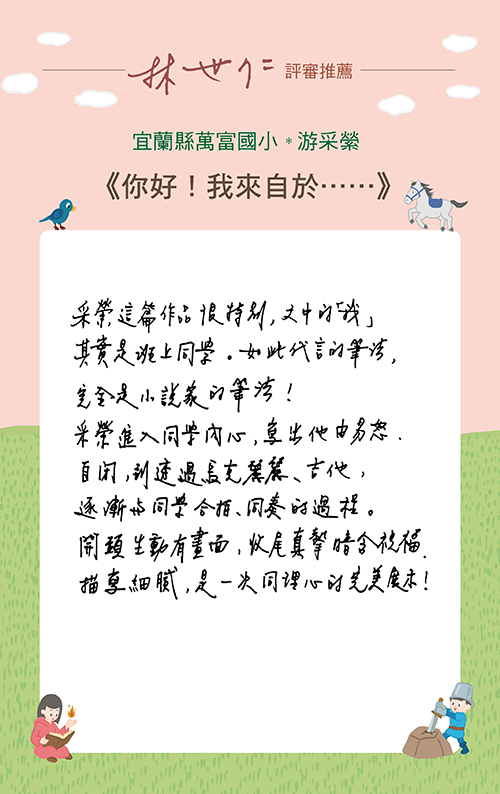 林世仁 評審推薦
宜蘭縣萬富國小＊游采縈
《你好！我來自於……》
采縈這篇作品很特別，文中的「我」
其實是班上同學。如此代言的筆法，
完全是小說家的筆法！
采縈進入同學內心，寫出他由易怒、
自閉，到透過烏克麗麗、吉他，
逐漸與同學合拍、同奏的過程。
開頭生動有畫面，收尾真摯暗含祝福。
描寫細膩，是一次同理心的完美展示！